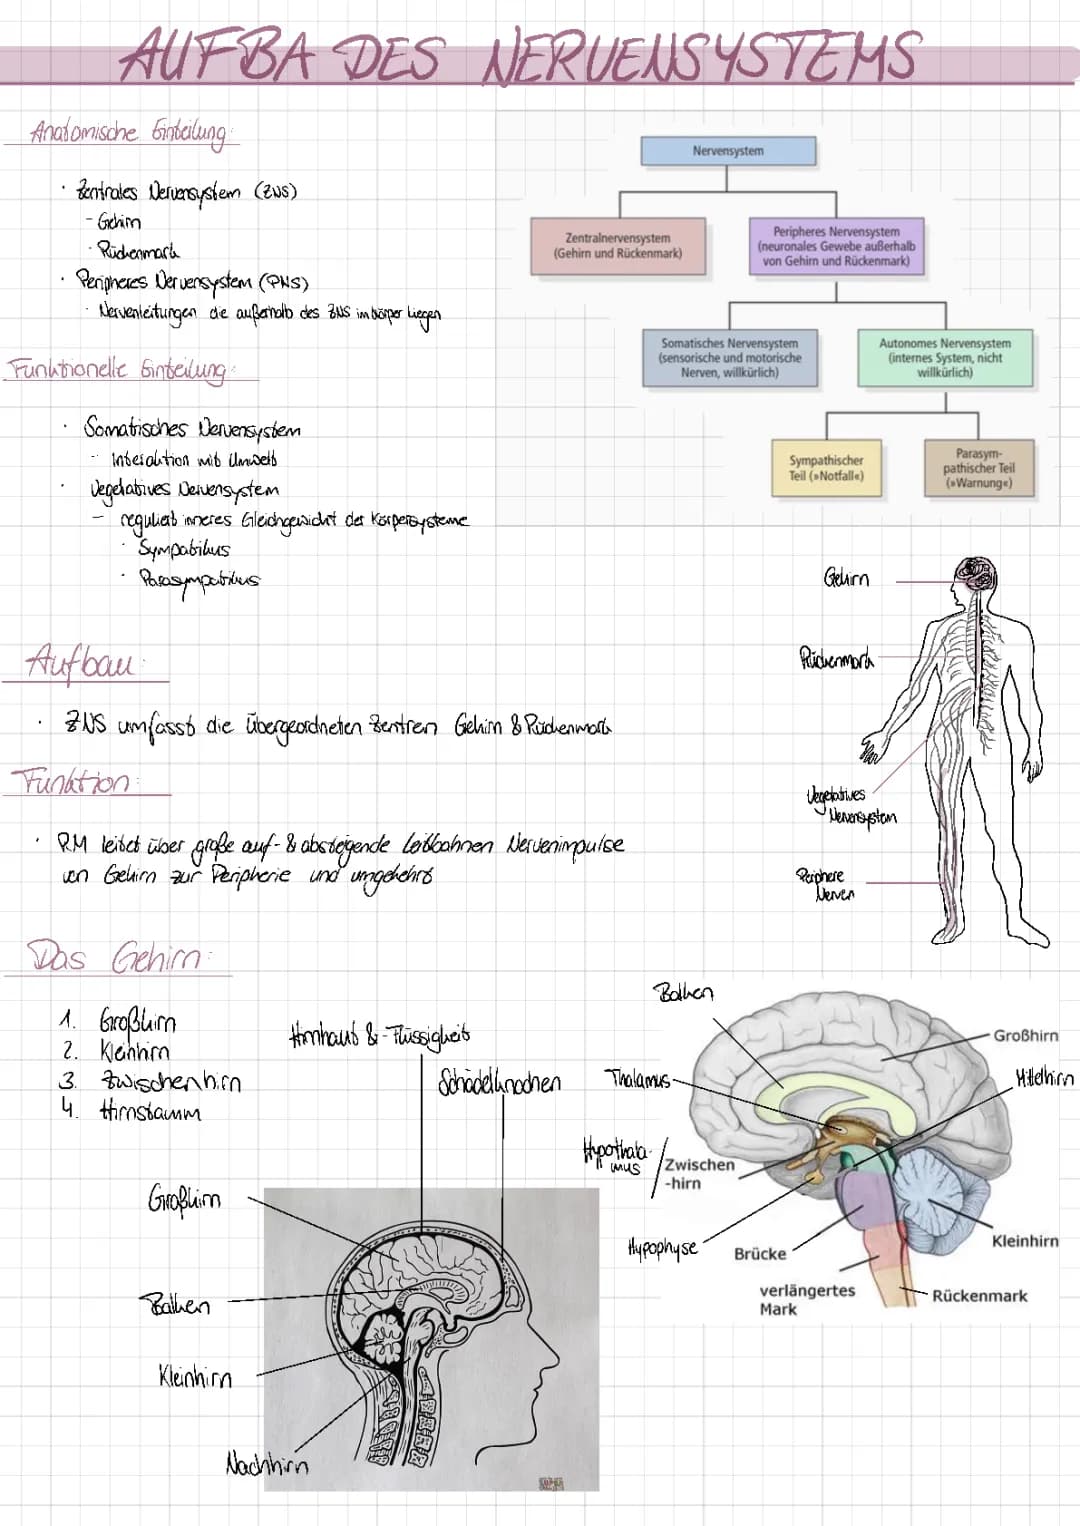 AUFBA DES NERVENSYSTEMS
Anatomische Einteilung:
· Zentrales Nervensystem (ZNS)
- Gehirn
· Rückenmark
· Peripheres Nervensystem (PNS)
· Nervenleitungen die außerhalb des ZNS im körper liegen
Funktionelle Einteilung:
· Somatisches Nervensystem
- Interaktion mit Umwelt
· Vegetatives Nervensystem
- reguliert inneres Gleichgewicht der Körpersysteme
· Sympatikus
· Parasympatikus
Nervensystem
Zentralnervensystem
(Gehirn und Rückenmark)
Peripheres Nervensystem
(neuronales Gewebe außerhalb
von Gehirn und Rückenmark)
Somatisches Nervensystem
(sensorische und motorische
Nerven, willkürlich)
Autonomes Nervensystem
(internes System, nicht
willkürlich)
Sympathischer
Teil (»Notfall«)
Parasym-
pathischer Teil
(»Warnung«)
Gehirn
Rückenmark
Vegetatives
Nervensystem
Periphere
Nerven
Aufbau:
· ZNS umfasst die übergeordneten Zentren Gehirn & Rückenmark
Funktion:
· RM leitet über große auf- & absteigende Leitbahnen Nervenimpulse
von Gehirn zur Peripherie und umgekehrt
Das Gehirn:
1. Großhirn
2. Kleinhirn
3. Zwischenhirn
4. Hirnstamm
Hirnhaut & -Flüssigkeit
Schädelknochen
Großhirn
Balken
Kleinhirn
Nachhirn
Balken
Großhirn
Thalamus
Mittelhirn
Hypothala-
mus
Zwischen
-hirn
Hypophyse
Brücke
Kleinhirn
verlängertes
Mark
Rückenmark